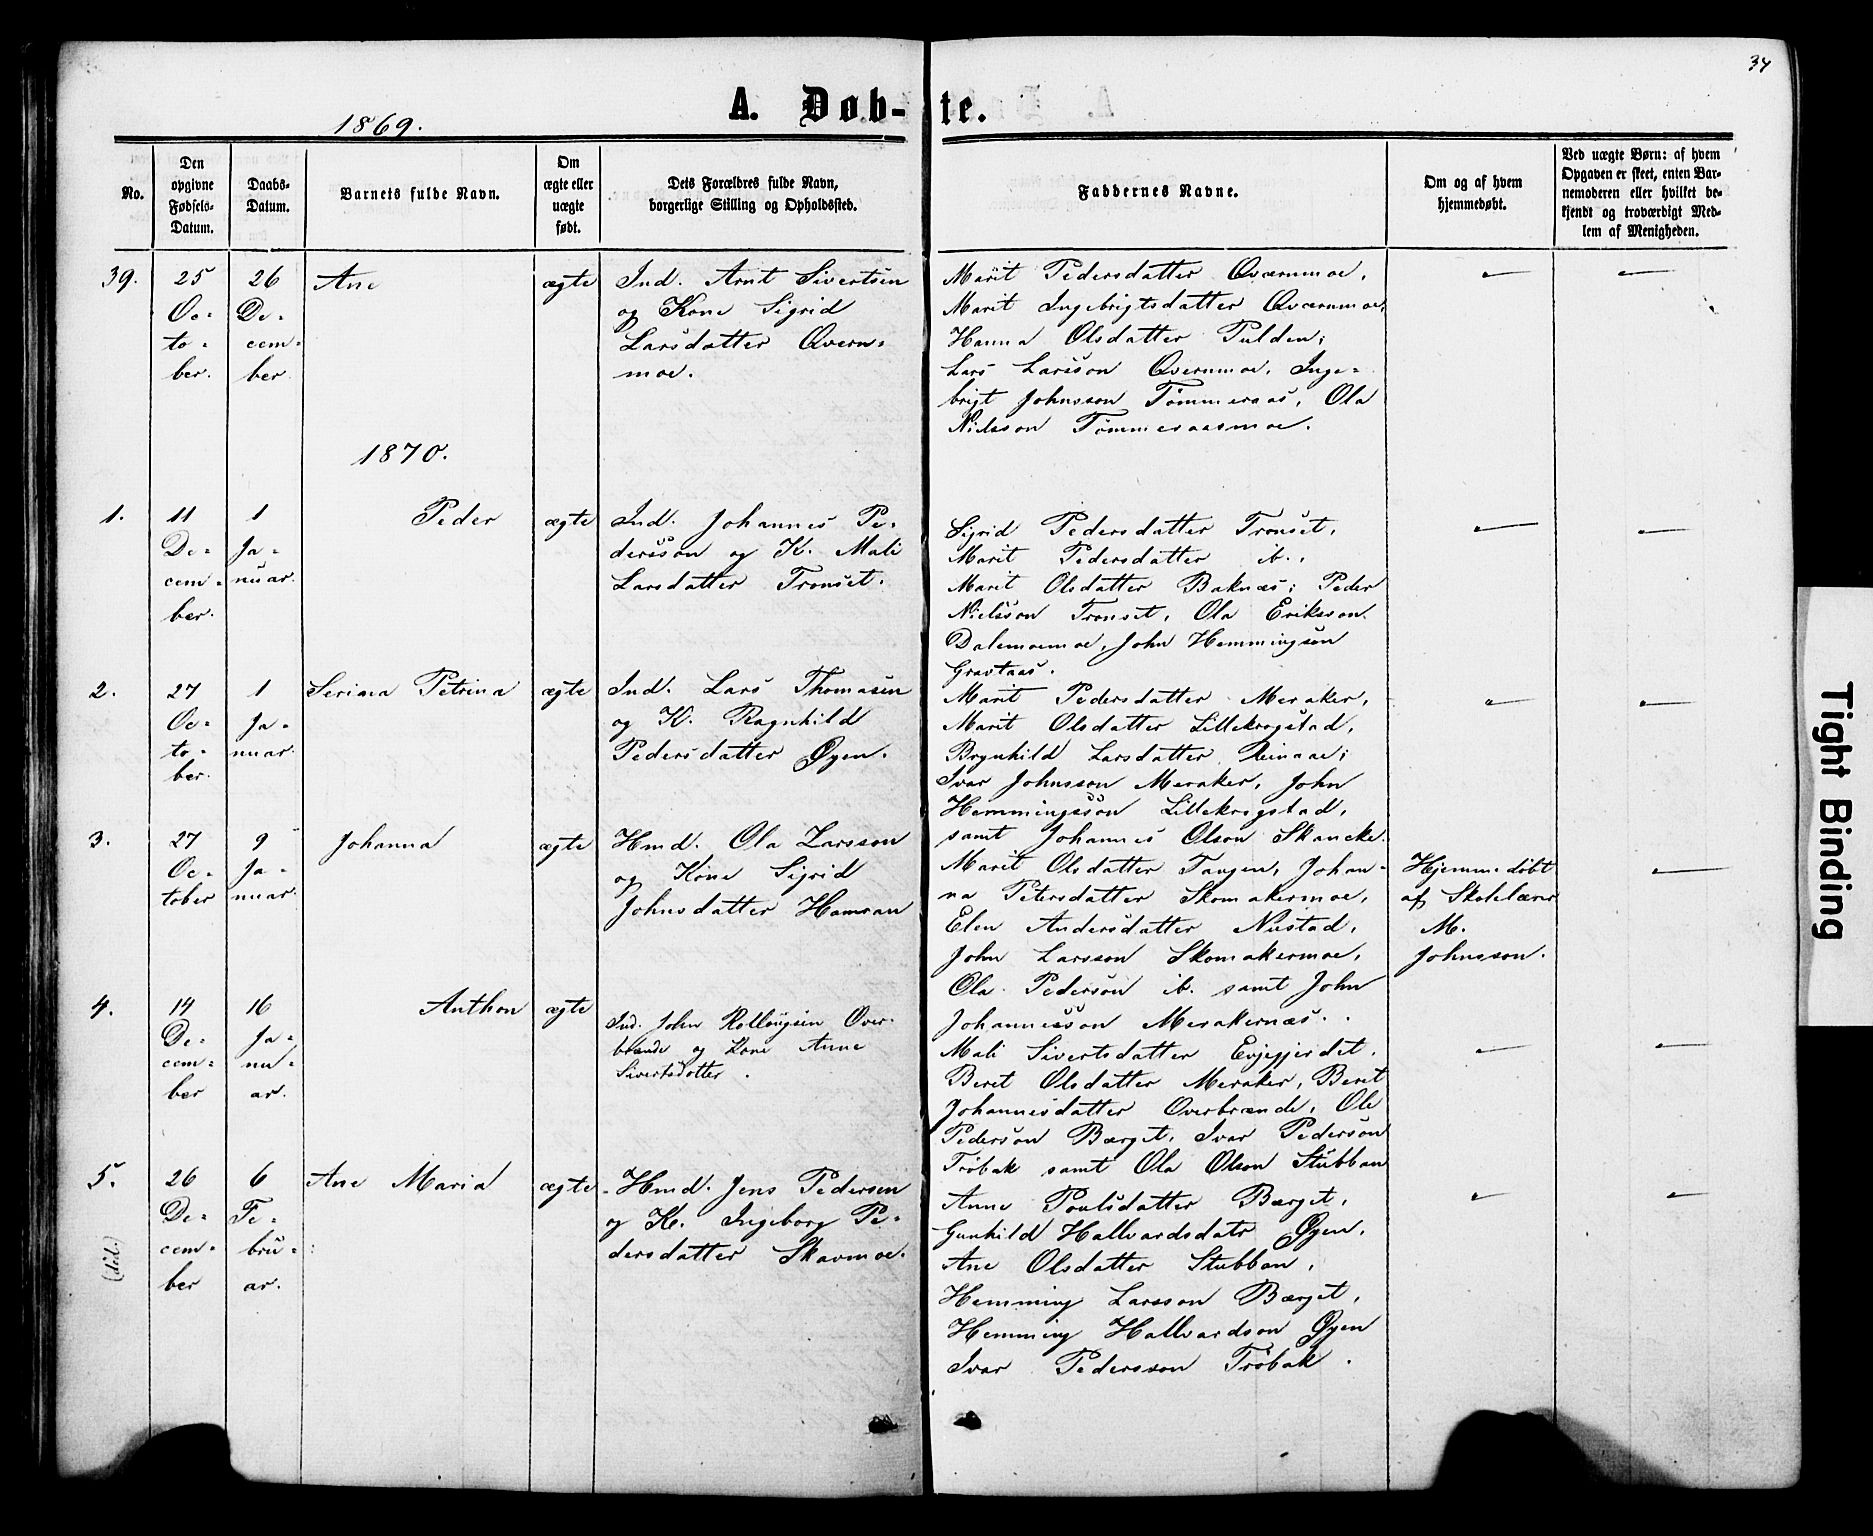 34
A. Døb-te.
1869.
No.
Den
opgivne
Fødsels-
Datum.
Daabs-
Datum.
Barnets fulde Navn.
Om
ægte eller
uægte
født.
Dets Forældres fulde Navn,
borgerlige Stilling og Opholdssted.
Faddernes Navne.
Om og af hvem
hjemmedøbt.
Ved uægte Børn: af hvem
Opgaven er skeet, enten Bar-
nemoderen eller hvilket be-
kjendt og troværdigt Med-
lem af Menigheden.
39.
25
Oc-
to-
ber.
26
De-
cem-
ber
Ane
ægte
Ind. Arnt Sivertsen
og Kone Sigrid
Larsdatter Qvern-
moe.
Marit Pedersdatter Qværnmoe,
Marit Ingebrigtsdatter Qværnmoe,
Hanna Olsdatter Pulden;
Lars Larsson Qvernmoe, Inge-
brigt Johnsson Tømmeraas, Ola
Nielsson Tømmeraasmoe.
—
—
1870.
1.
11
De-
cem-
ber.
1
Ja-
nuar.
Peder
ægte
Ind. Johannes Pe-
dersson og K. Mali
Larsdatter Tronset.
Sigrid Pedersdatter Tronset,
Marit Pedersdatter ib.,
Marit Olsdatter Baknæs; Peder
Nielsson Tronset, Ola Eriksson
Dalemoemoe, John Hemmingson
Gravtaas.
—
—
2.
27
Oc-
to-
ber.
1
Ja-
nuar.
Serina Petrina
ægte
Ind. Lars Thomasen
og K. Ragnhild
Pedersdatter Øyen.
Marit Pedersdatter Meraker,
Marit Olsdatter Lillekrogstad,
Brynhild Larsdatter Reinaae;
Ivar Johnsson Meraker, John
Hemmingsson Lillekrogstad,
samt Johannes Olson Skancke.
—
—
3.
27
Oc-
tober
9
Ja-
nuar.
Johanna
ægte
Hmd. Ola Larsson
og Kone Sigrid
Johnsdatter Hamran
Marit Olsdatter Tangen, Johan-
na Petersdatter Skomakermoe,
Elen Andersdatter Nustad,
John Larsson Skomakermoe,
Ola Pederson ib. samt John
Johannesson Merakernæs.
Hjemmedøbt
af Skolelærer
M.
Johnsson.
—
4.
14
De-
cem-
ber
16
Ja-
nu-
ar.
Anthon
ægte
Ind. John Rolløugsen Over-
brænde og Kone Anne
Sivertsdotter.
Mali Sivertsdatter Evjegjerdet,
Beret Olsdatter Meraker, Beret
Johannesdatter Overbrænde, Ole
Pederson Bærget, Ivar Pederson
Trøbak samt Ola Olson Stubban
—
—
5.
(død.)
26
De-
cem-
ber
6
Fe-
bru-
ar.
Ane Maria
ægte
Hmd. Jens Pedersen
og K. Ingeborg Pe-
dersdatter Skavmoe.
Anne Poulsdatter Bærget,
Gunhild Hallvardsdatr Øyen,
Ane Olsdatter Stubban,
Hemming Larsson Bærget,
Hemming Hallvardson Øyen
Ivar Pedersson Trøbak.
—
—
Tight Binding